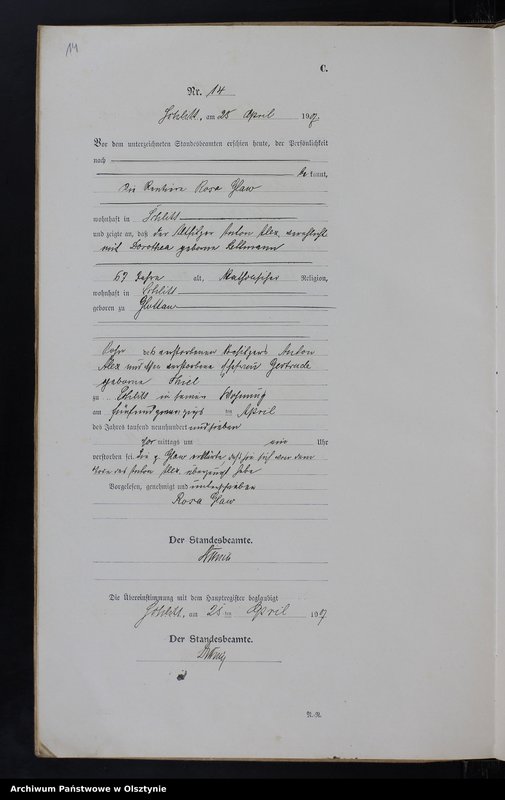 14
C.
Nr. 14
Schlitt, am 25 April 1907.
Vor dem unterzeichneten Standesbeamten erschien heute, der Persönlichkeit
nach
bekannt,
die Rentiere Rosa Glaw
wohnhaft in Schlitt
und zeigte an, daß der Altsitzer Anton Alex, verehelicht
mit Dorothea geborne
67 Jahre alt, katholischer Religion,
wohnhaft in Schlitt
geboren zu Glottau
Sohn des verstorbenen Besitzers Anton
Alex und verstorbene Ehefrau Gertrude
geborne Thiel
zu Schlitt in seiner Wohnung
am fünfundzwanzigs ten April
des Jahres tausend neunhundert und sieben
Vor mittags um ein Uhr
verstorben sei. Die p. Glaw erklärte daß sie sich von dem
Tode des Anton Alex überzeugt habe
Vorgelesen, genehmigt und unterschrieben
Rosa Glaw
Der Standesbeamte.
Die Übereinstimmung mit dem Hauptregister beglaubigt
Schlitt, am 25 ten April 1907.
Der Standesbeamte.
Archiwum Państwowe w Olsztynie